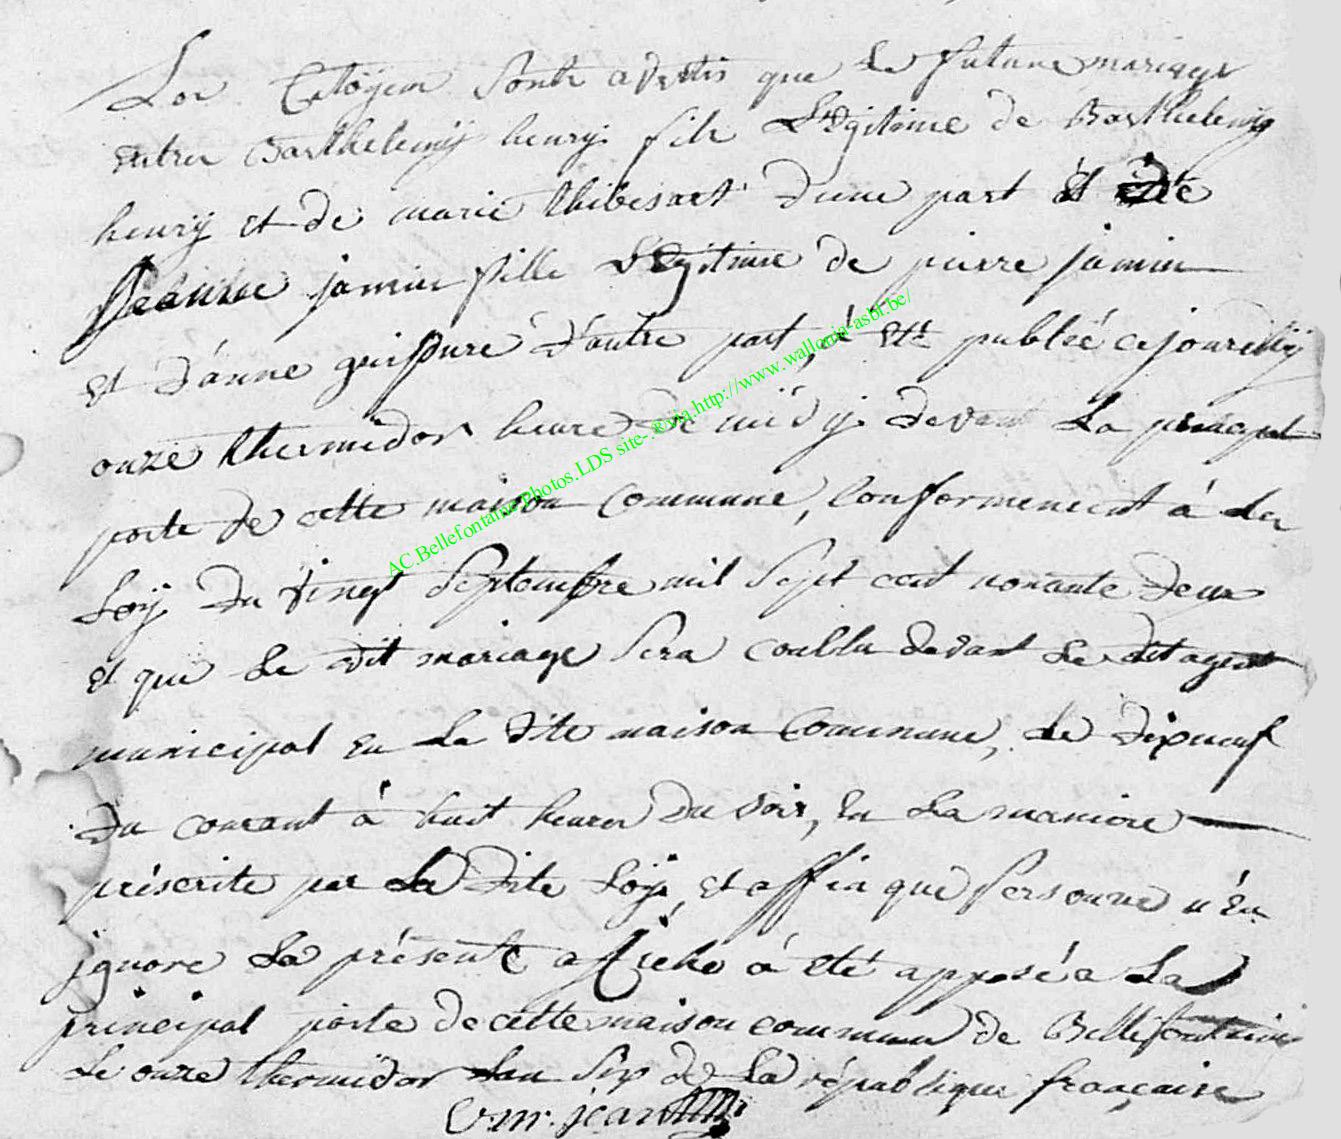 Les Citoÿens sont advertis que le future mariage
entre Barthelemÿ henrÿ fils Légitime de Barthelemÿ
henrÿ et de marie thibesart d'une part et de
Jeanne jamin fille Légitime de pierre jamin
et d'anne d'autre part, á été publéé ce jourdhuÿ
onze thermidor heure de midÿ devant La principal
porte de cette maison commune, conformement á La
Loÿ du vingt septembre mil sept cent nonante deux
et que le dit mariage sera devant Le dit agent
municipal en La dite maison commune, Le dixneuf
du courant á huit heures du soir, en La maniere
préscrite par La dite Loÿ, et affin que personne n'én
jgnore La présente affiche á eté apposé a La
principal porte de cette maison commune de Bellefontaine
Le onze thermidor Lan six de La république française
jean
AC.Bellefontaine Photos.LDS site- ®via.http://www.wallonia-asbl.be/